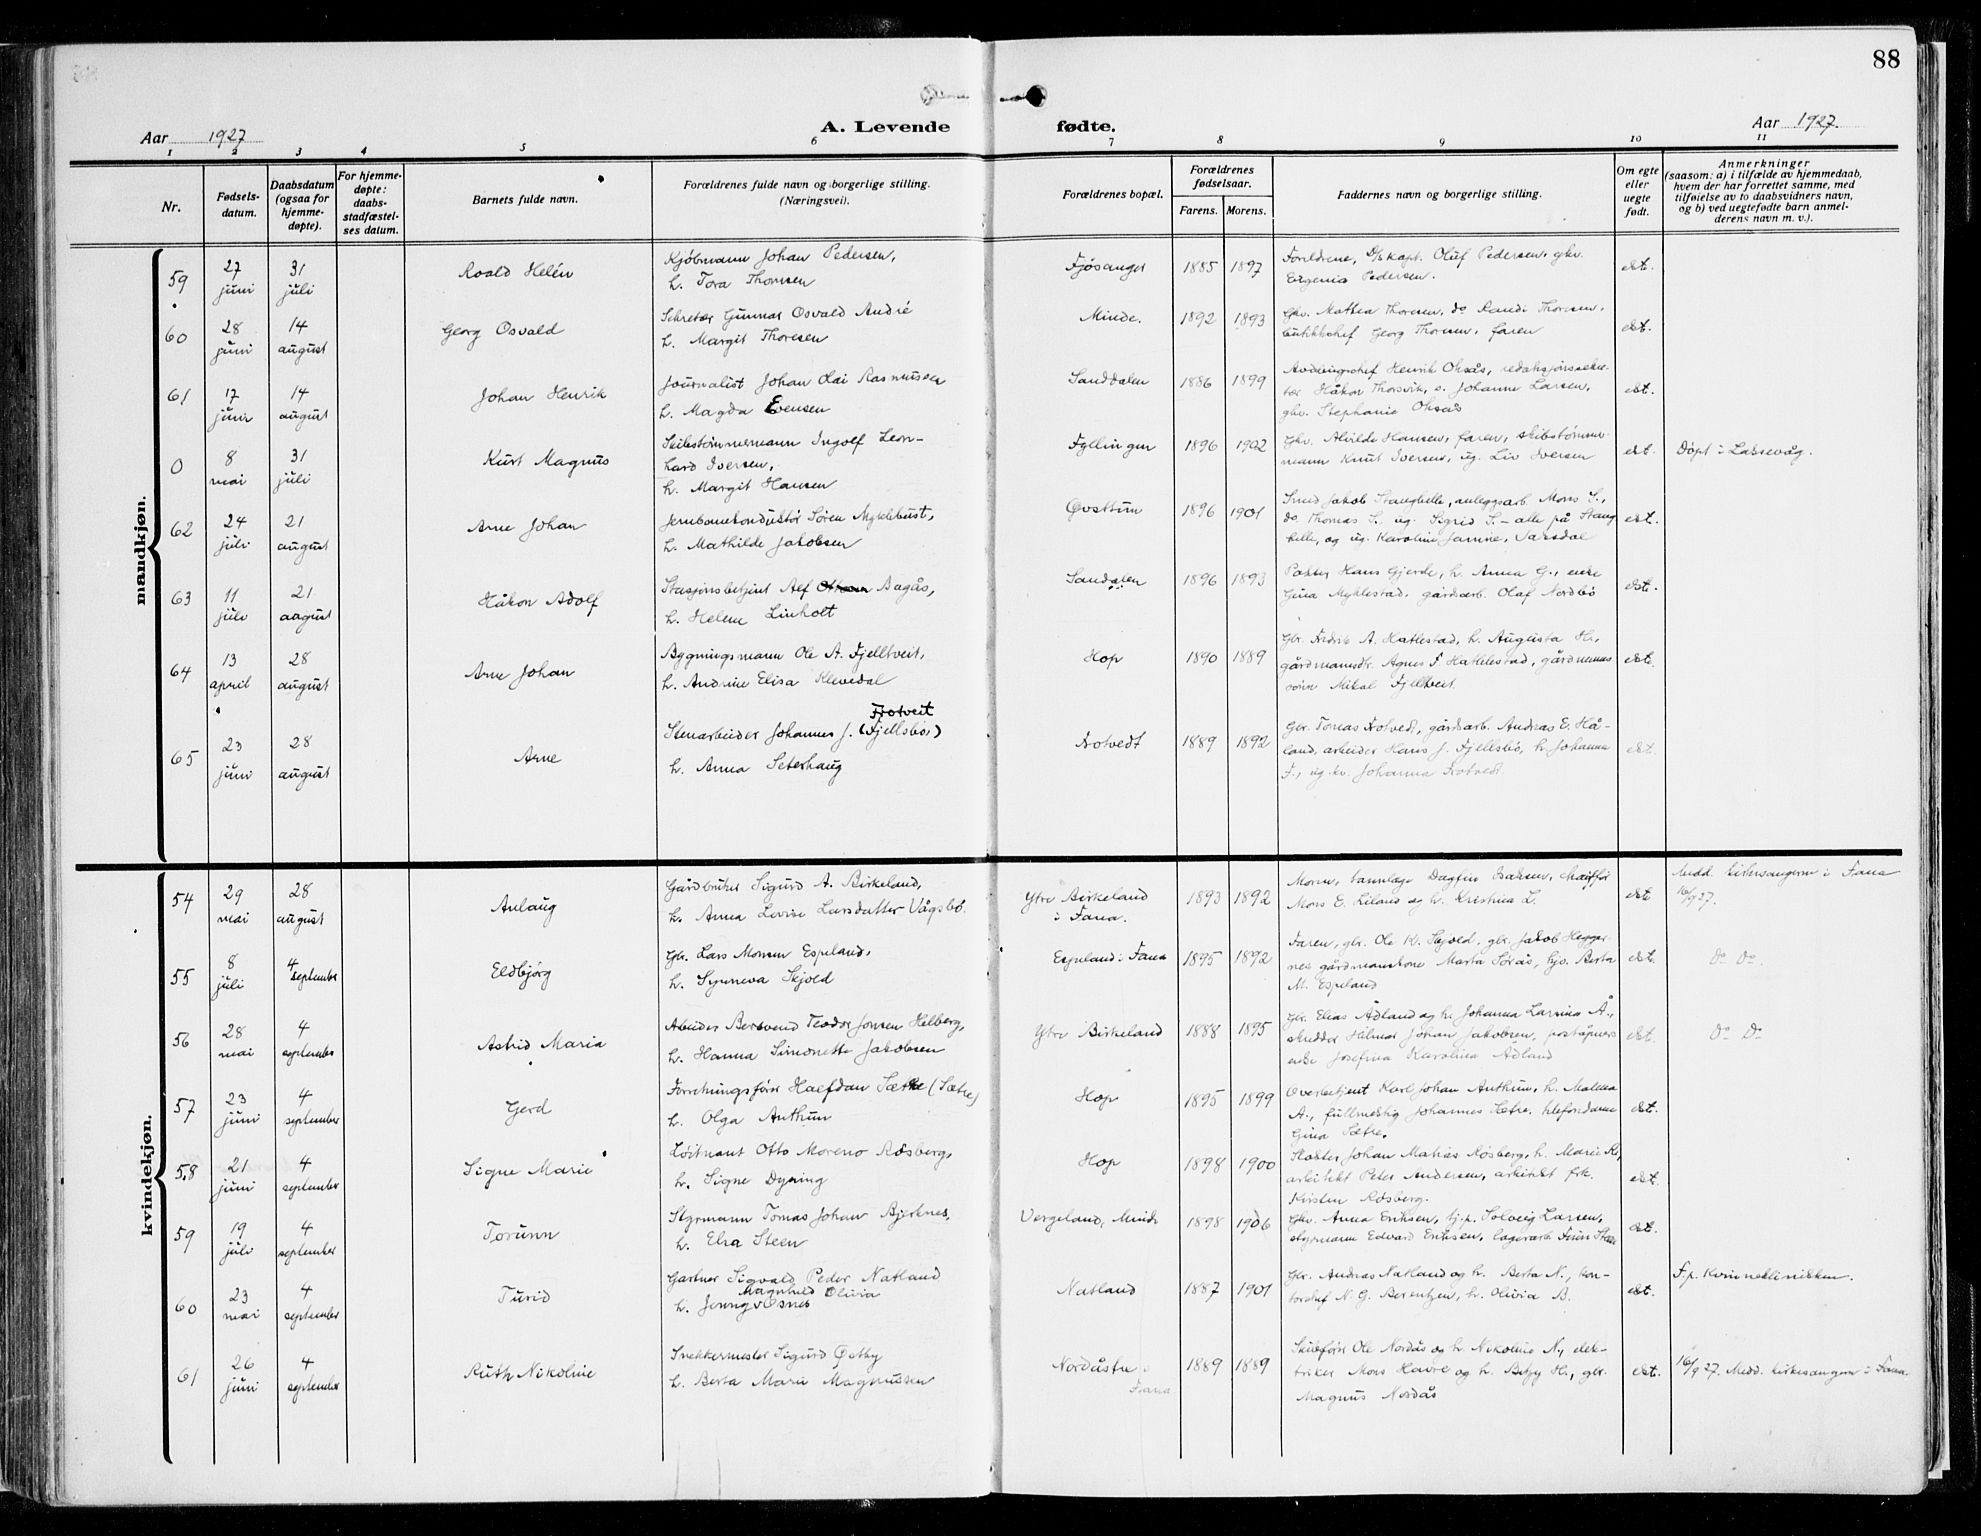 88
Aar 1927
A. Levende fødte.
Aar 1927.
1 2 3 4 5 6 7 8 9 10 11
Nr.
Fødsels-
datum.
Daabsdatum
(ogsaa for
hjemme-
døpte).
For hjemme-
døpte:
daabs-
stadfæstel-
ses datum.
Barnets fulde navn.
Forældrenes fulde navn og borgerlige stilling.
(Næringsvei).
Forældrenes bopæl.
Forældrenes
fødselsaar.
Farens. Morens.
Faddernes navn og borgerlige stilling.
Om egte
eller
uegte
født.
Anmerkninger
(saasom: a) i tilfælde av hjemmedaab,
hvem der har forrettet samme, med
tilføielse av to daabsvidners navn,
og b) ved uegtefødte barn anmel-
derens navn m. v.).
mandkjøn.
59 27 juni 31 juli Roald Helén
Kjøbmann Johan Pedersen,
h. Tora Thomsen
Fjøsanger 1885 1897
Foreldrene, D/s kapt. Oluf Pedersen, ghv.
Eugenia Pedersen.
ekt.
60 28 juni 14 august Georg Osvald
Sekretær Gunnar Osvald André
h. Margit Thoresen
Minde. 1892 1893
Ghv. Mathea Thoresen, do Randi Thoresen,
butikkchef Georg Thoresen, faren
ekt.
61 17 juni 14 august Johan Henrik
Journalist Johan Olai Rasmussen
h. Magda Evensen
Sanddalen 1886 1899
Avdelingschef Henrik Oksås, redaksjonssekre-
tær Håkon Thorsvik, s. Johanne Larsen,
ghv. Stephanie Oksås
ekt.
0 8 mai 31 juli Kurt Magnus
Skibstømmermann Ingolf Leon-
hard Iversen,
h. Margit Hansen
Fyllingen 1896 1902
Ghv. Alvilde Hansen, faren, skibstømmer-
mann Knut Iversen, ug. Liv Iversen
ekt.
Døpt i Laksevåg.
62 24 juli 21 august Arne Johan
Jernbanekonduktør Søren Myklebust,
h. Mathilde Jakobsen
Øvsttun 1896 1901
Smed Jakob Stanghelle, anleggsarb. Mons S.,
do Thomas S., ug. Sigrid S. - alle på Stang
helle, og ug. Karoline Jamne, Vaksdal
ekt.
63 11 juli 21 august Håkon Adolf
Stasjonsbetjent Alf Bagås,
h. Helene Linholt
Sandalen 1896 1893
Pakker Hans Gjerde, h. Anna G., enke
Gina Myklestad, gårdsarb. Olaf Nordbø
ekt.
64 13 april 28 august Arne Johan
Bygningsmann Ole A. Fjelltveit,
h. Andrine Elisa Klevedal
Hop 1890 1889
Gbr. Fredrik A. Hatlestad, h. Augusta H.,
gårdmannsdtr. Agnes F. Hatlestad, gårdmanns
sønn Mikal Fjelltveit.
ekt.
65 23 juni 28 august Arne
Frotveit
Stenarbeider Johannes J. (Fjellsbø)
h. Anna Seterhaug
Frotvedt 1889 1892
Gbr. Tomas Frotvedt, gårdsarb. Andreas E. Hå-
land, arbeider Hans J. Fjellsbø, h. Johanna
F., ug. kv. Johanna Frotvedt.
ekt.
kvindekjøn.
54 29 mai 28 august Aslaug
Gårdbruker Sigurd A. Birkeland,
h. Anna Lovise Larsdatter Vågsbø.
Ytre Birkeland
i Fana.
1893 1892
Moren, tannlæge Dagfin Isaksen, chauffør
Mons E. Liland og h. Kristina L.
ekt
Medd. kirkesangeren i Fana
16/9 27.
55 8 juli 4 september Eldbjørg
Gbr. Lars Monsen Espeland,
h. Synneva Skjold
Espeland i Fana 1895 1892
Faren, gbr. Ole K. Skjold, gbr. Jakob Hegger-
nes gårdmannskone Marta Sørås, hjv. Berta
M. Espeland
ekt.
Do Do.
56 28 mai 4 september Astrid Maria
Arbeider Bersvend Teodor Jonsen Helberg,
h. Hanna Simonette Jakobsen
Ytre Birkeland 1888 1895
Gbr. Elias Ådland og h. Johanna Larnina Å.,
skredder Hilmar Johan Jakobsen, poståpners
enke Josefina Karolina Ådland
ekt.
Do Do
57 23 juni 4 september Gerd
Forretningsfører Halfdan Sæthre (Sætre)
h. Olga Anthun
Hop 1895 1899
Overbetjent Karl Johan Anthun, h. Malena
A., fullmektig Johannes Sætre, telefondame
Gina Sætre.
ekt.
58 21 juni 4 september Signe Marie
Løitnant Otto Moreno Røsberg,
h. Signe Dyning
Hop 1898 1900
Slakter Johan Matias Røsberg, h. Marie R.,
arkitekt Peter Andersen, arkitekt frk.
Kirsten Røsberg.
ekt.
59 19 juli 4 september Torunn
Styrmann Tomas Johan Bjerknes,
h. Elsa Steen
Vergeland, Minde 1898 1906
Ghv. Anna Eriksen, tj.p. Solveig Larsen,
styrmann Edvard Eriksen, lagerarb. Finn Steen
ekt.
60 23 mai 4 september Turid
Gartner Sigvald Peder Natland
Magnhild Olivia
h. Jenny Osnes
Natland 1887 1901
Gbr. Andreas Natland og h. Berta N., kon-
torchef N. G. Berentzen, h. Olivia B.
ekt.
F. p. Kvinneklinikken.
61 26 juni 4 september Ruth Nikoline
Snekkermester Sigurd Østby
h. Berta Marie Magnussen
Nordåstre i
Fana
1889 1889
Skibsfører Ole Nordås og h. Nikoline N., elek-
triker Mons Havre og h. Betzy H., gbr.
Magnus Nordås
ekt.
16/9 27. Medd. kirkesangeren i Fana.